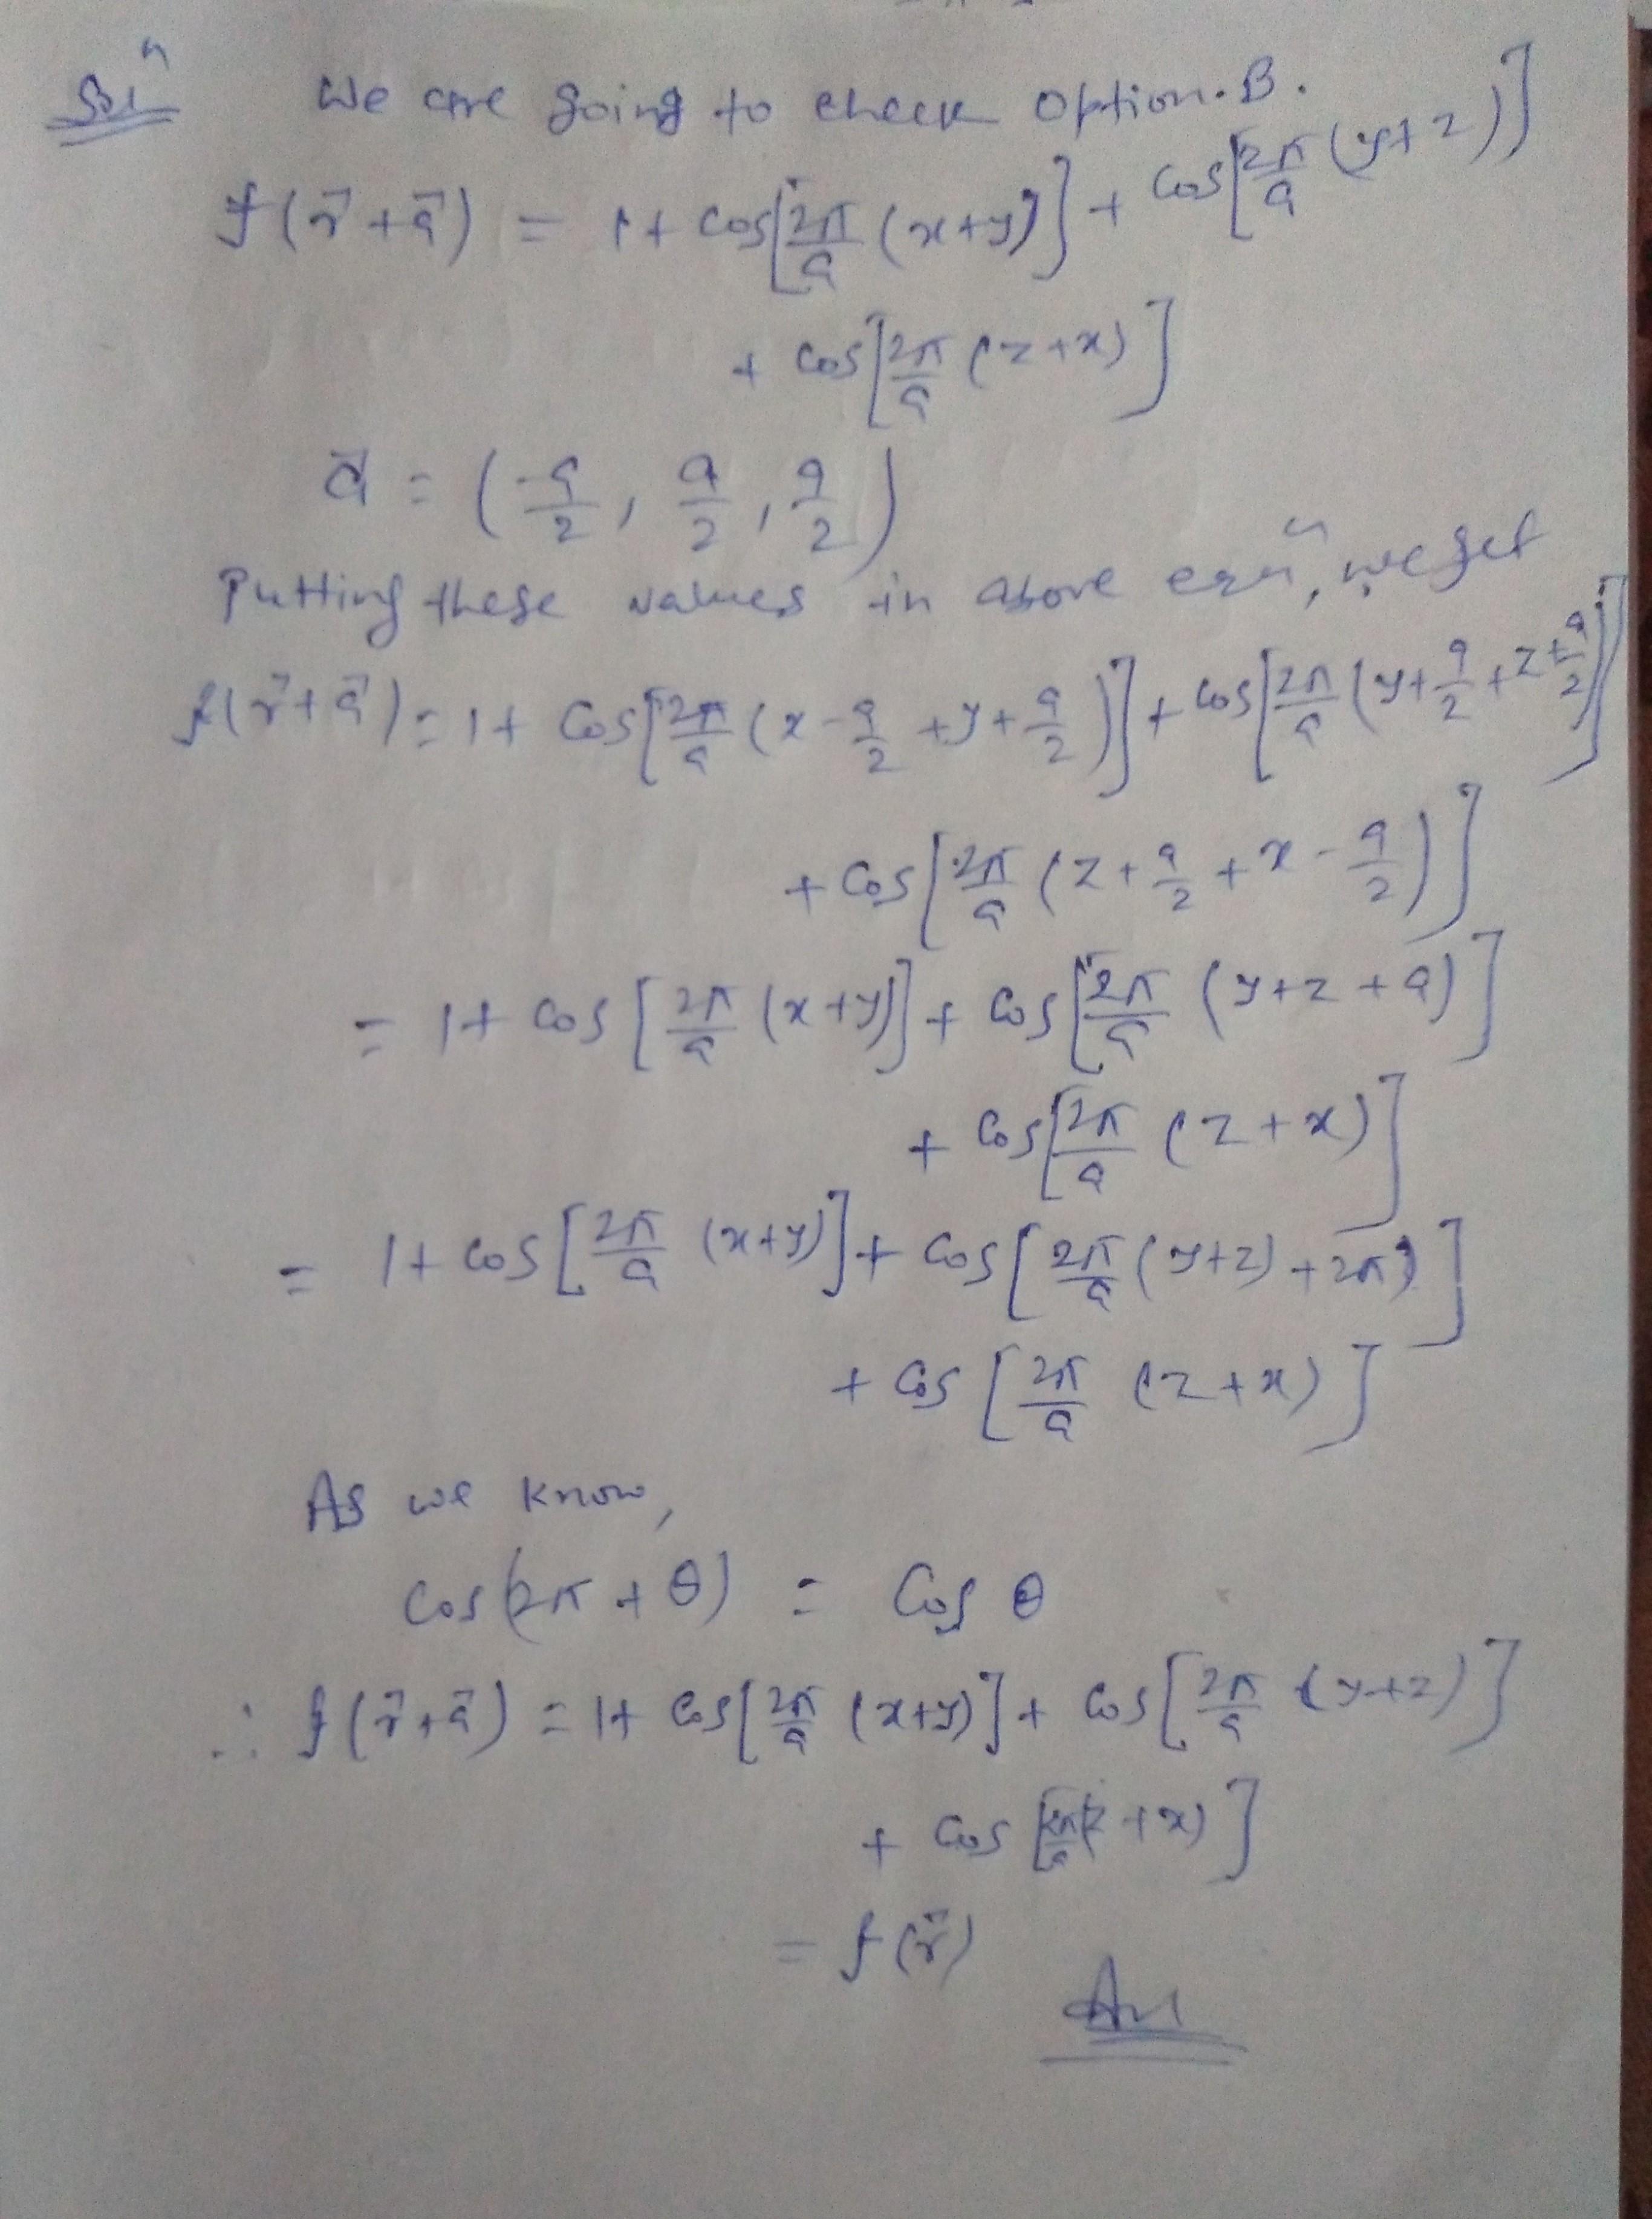 Solⁿ We are going to check option.B.
f(r⃗+a⃗) = 1+ cos[2π/a (x+y)] + cos[2π/a (y+z)]
+ cos[2π/a (z+x)]
a⃗ = (-a/2, a/2, a/2)
Putting these values in above eqⁿ, we get
f(r⃗+a⃗) = 1+ cos[2π/a (x-a/2+y+a/2)] + cos[2π/a (y+a/2+z+a/2)]
+ cos[2π/a (z+a/2+x-a/2)]
= 1+ cos[2π/a (x+y)] + cos[2π/a (y+z+a)]
+ cos[2π/a (z+x)]
= 1+ cos[2π/a (x+y)] + cos[2π/a (y+z)+2π)]
+ cos[2π/a (z+x)]
As we know,
cos(2π+θ) = cosθ
∴ f(r⃗+a⃗) = 1+ cos[2π/a (x+y)] + cos[2π/a (y+z)]
+ cos[2π/a (z+x)]
= f(r⃗)
Ans